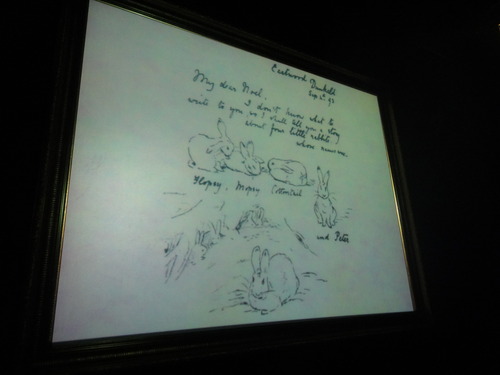 Eastwood Dunkeld
Sep 4th 93
My dear Noel,
I don't know what to
write to you, so I shall tell you a story
about four little rabbits
whose names were
Flopsy, Mopsy Cottontail
and Peter